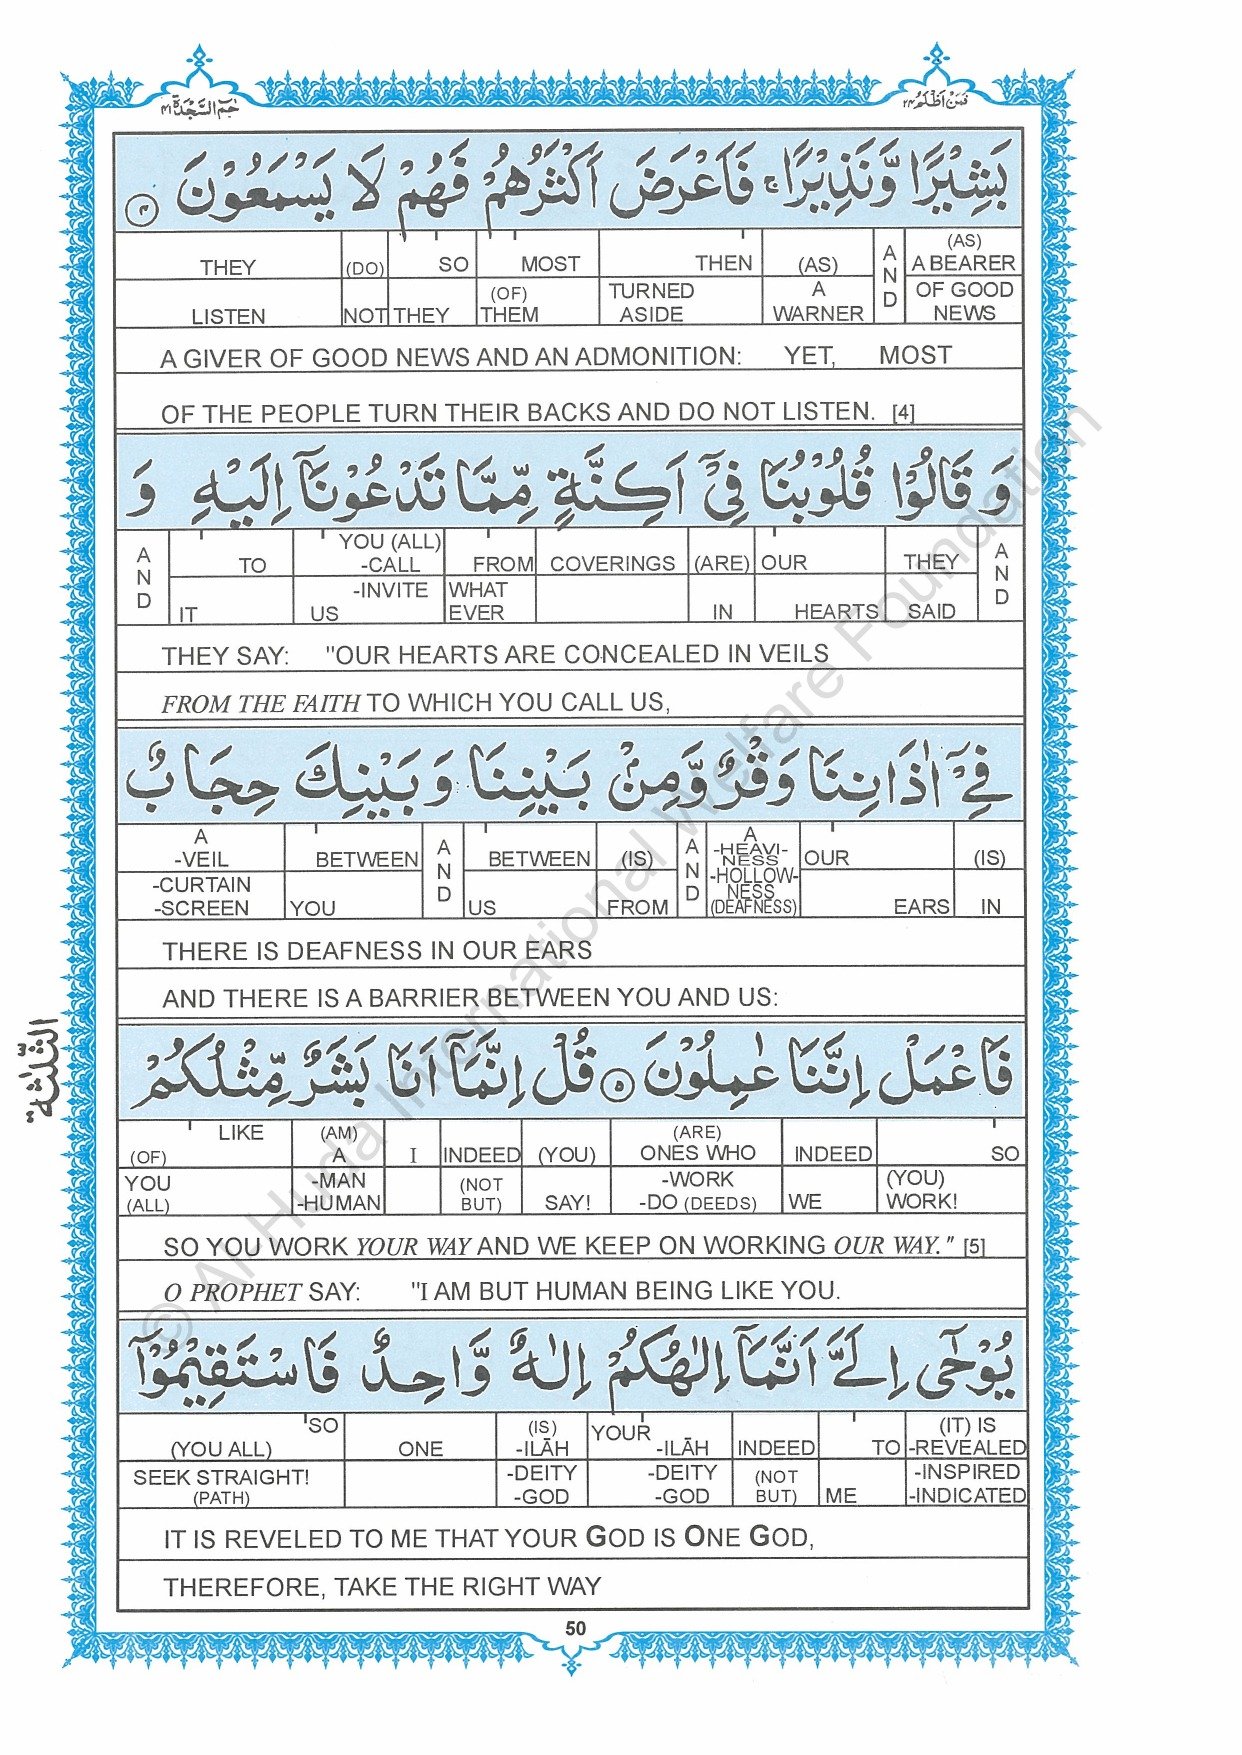 حٰمٓ السَّجْدَة ٤١
فَمَنْ اَظْلَمُ ٢٤
بَشِيْرًا وَّنَذِيْرًا ۚ فَاَعْرَضَ اَكْثَرُهُمْ فَهُمْ لَا يَسْمَعُوْنَ ۴
THEY (DO) SO MOST THEN (AS) AND (AS) A BEARER
LISTEN NOT THEY (OF) THEM TURNED ASIDE A WARNER OF GOOD NEWS
A GIVER OF GOOD NEWS AND AN ADMONITION: YET, MOST
OF THE PEOPLE TURN THEIR BACKS AND DO NOT LISTEN. [4]
وَ قَالُوْا قُلُوْبُنَا فِيْٓ اَكِنَّةٍ مِّمَّا تَدْعُوْنَآ اِلَيْهِ وَ
AND TO YOU (ALL) -CALL FROM COVERINGS (ARE) OUR THEY AND
IT -INVITE US WHAT EVER IN HEARTS SAID
THEY SAY: "OUR HEARTS ARE CONCEALED IN VEILS
FROM THE FAITH TO WHICH YOU CALL US,
فِيْٓ اٰذَانِنَا وَقْرٌ وَّمِنْۢ بَيْنِنَا وَ بَيْنِكَ حِجَابٌ
A -VEIL BETWEEN AND BETWEEN (IS) AND A -HEAVI- NESS -HOLLOW- NESS (DEAFNESS) OUR (IS)
-CURTAIN -SCREEN YOU US FROM EARS IN
THERE IS DEAFNESS IN OUR EARS
AND THERE IS A BARRIER BETWEEN YOU AND US:
فَاعْمَلْ اِنَّنَا عٰمِلُوْنَ ۵ قُلْ اِنَّمَآ اَنَا بَشَرٌ مِّثْلُكُمْ
الثّلٰثة
LIKE (OF) (AM) A I INDEED (YOU) (ARE) ONES WHO INDEED SO
YOU (ALL) -MAN -HUMAN (NOT BUT) SAY! -WORK -DO (DEEDS) WE (YOU) WORK!
SO YOU WORK YOUR WAY AND WE KEEP ON WORKING OUR WAY." [5]
O PROPHET SAY: "I AM BUT HUMAN BEING LIKE YOU.
يُوْحٰٓى اِلَيَّ اَنَّمَآ اِلٰهُكُمْ اِلٰهٌ وَّاحِدٌ فَاسْتَقِيْمُوْٓا
SO (YOU ALL) ONE (IS) -ILĀH YOUR -ILĀH INDEED TO (IT) IS -REVEALED
SEEK STRAIGHT! (PATH) -DEITY -GOD -DEITY -GOD (NOT BUT) ME -INSPIRED -INDICATED
IT IS REVELED TO ME THAT YOUR GOD IS ONE GOD,
THEREFORE, TAKE THE RIGHT WAY
50
© Al-Huda International Welfare Foundation